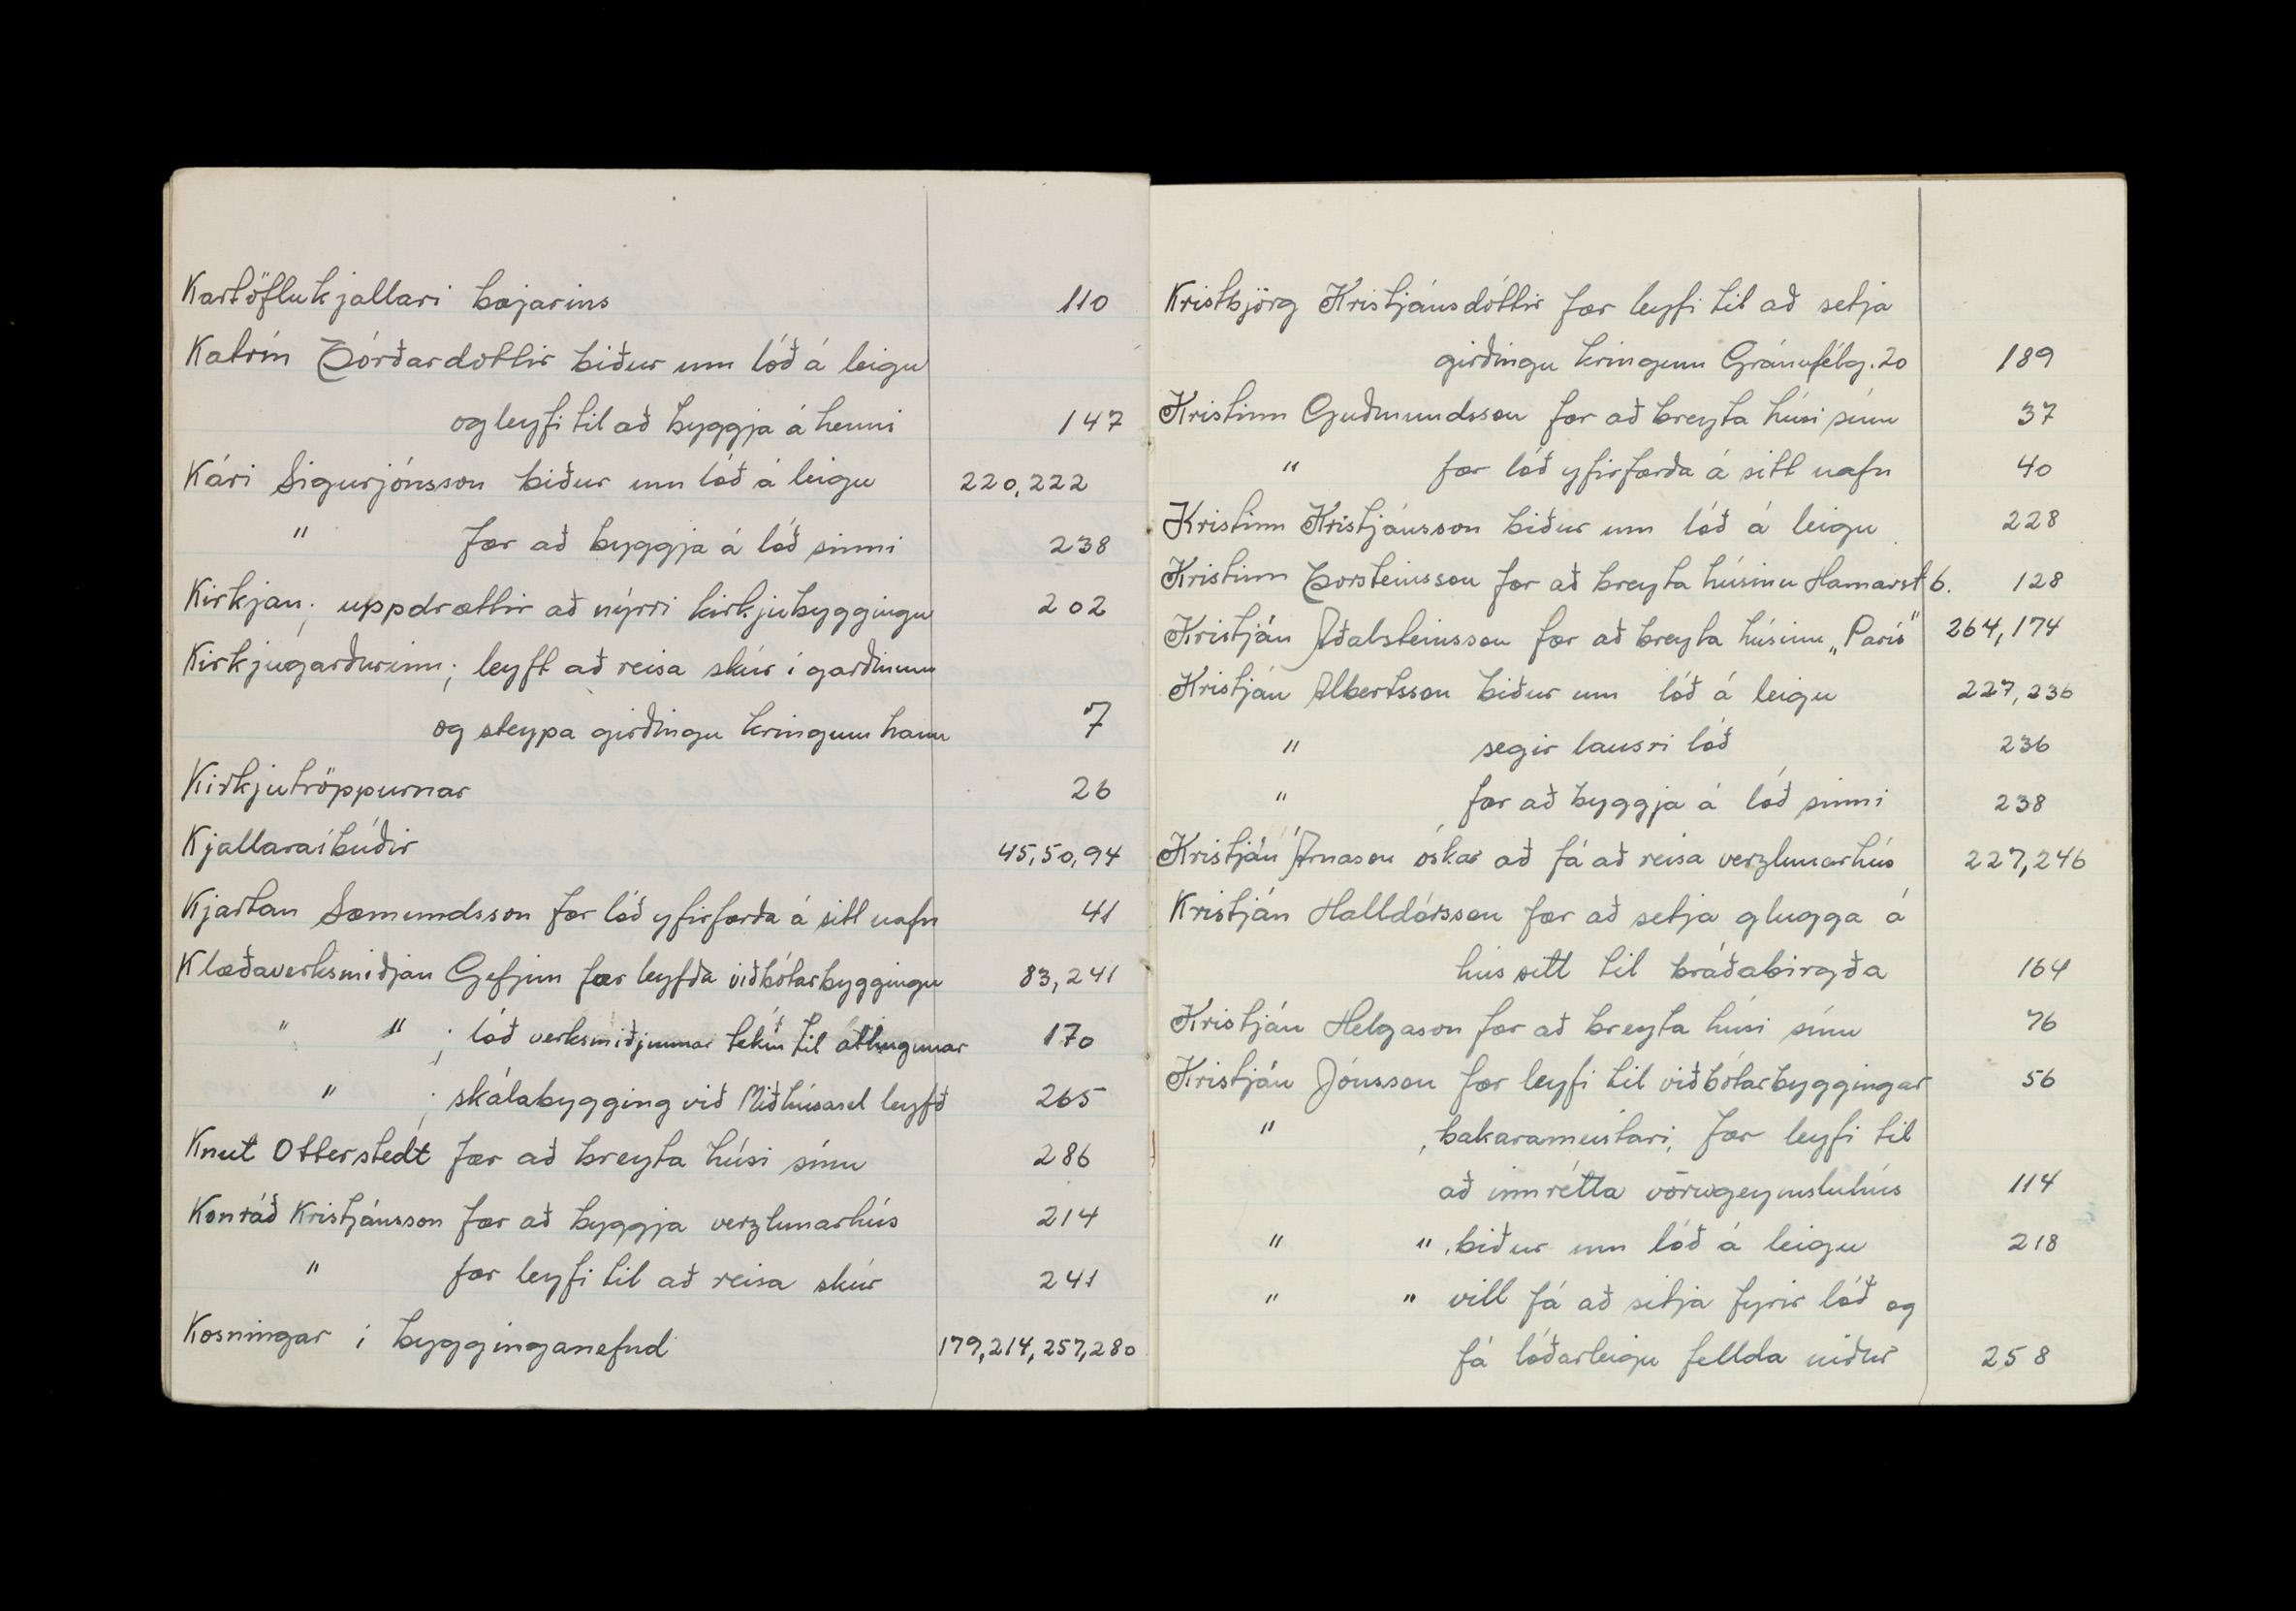 Kartöflukjallari bæjarins 110
Katrín Þórðardóttir biður um lóð á leigu
og leyfi til að byggja á henni 147
Kári Sigurjónsson biður um lóð á leigu 220, 222
" fær að byggja á lóð sinni 238
Kirkjan; uppdrættir að nýrri kirkjubyggingu 202
Kirkjugarðurinn; leyft að reisa skúr í garðinum
og steypa girðingu kringum hann 7
Kirkjutröppurnar 26
Kjallaraíbúðir 45, 50, 94
Kjartan Sæmundsson fær lóð yfirfærða á sitt nafn 41
Klæðaverksmiðjan Gefjun fær leyfða viðbótarbyggingu 83, 241
" " ; lóð verksmiðjunnar tekin til athugunar 170
" ; skálabygging við Miðhúsasel leyfð 265
Knut Otterstedt fær að breyta húsi sínu 286
Konráð Kristjánsson fær að byggja verzlunarhús 214
" fær leyfi til að reisa skúr 241
Kosningar í bygginganefnd 179, 214, 257, 280
Kristbjörg Kristjánsdóttir fær leyfi til að setja
girðingu kringum Gránufélg. 20 189
Kristinn Guðmundsson fær að breyta húsi sínu 37
" fær lóð yfirfærða á sitt nafn 40
Kristinn Kristjánsson biður um lóð á leigu 228
Kristinn Þorsteinsson fær að breyta húsinu Hamarst. 6. 128
Kristján Aðalsteinsson fær að breyta húsinu „París" 264, 174
Kristján Albertsson biður um lóð á leigu 227, 236
" segir lausri lóð 236
" fær að byggja á lóð sinni 238
Kristján Árnason óskar að fá að reisa verzlunarhús 227, 246
Kristján Halldórsson fær að setja glugga á
hús sitt til bráðabirgða 164
Kristján Helgason fær að breyta húsi sínu 76
Kristján Jónsson fær leyfi til viðbótarbyggingar 56
" , bakarameistari, fær leyfi til
að innrétta vörugeymsluhús 114
" " , biður um lóð á leigu 218
" " vill fá að sitja fyrir lóð og
fá lóðarleigu fellda niður 258